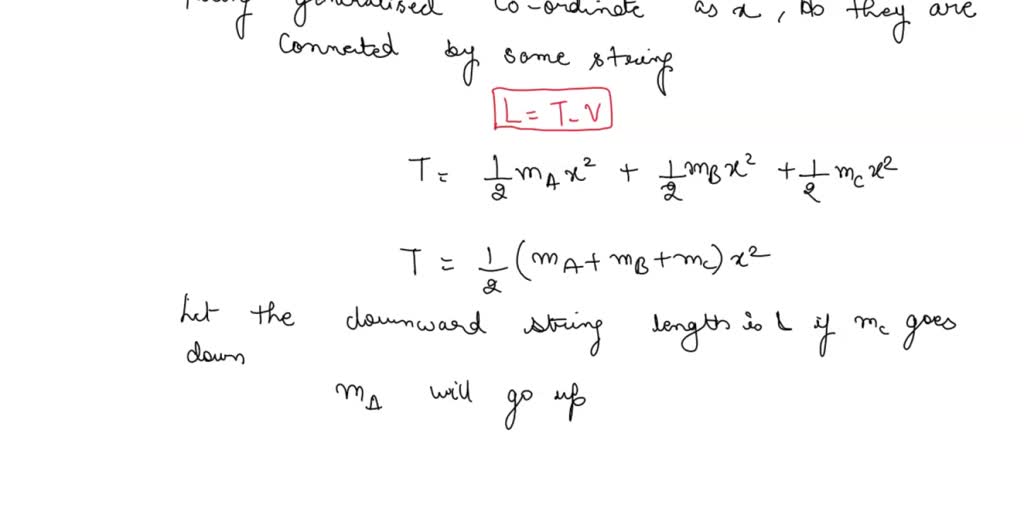 generalised co-ordinate as x, so they are
connected by some string
L = T - V
T = 1/2 m_A x² + 1/2 m_B x² + 1/2 m_C x²
T = 1/2 (m_A + m_B + m_C) x²
Let the downward string length is L if m_c goes
down
m_A will go up